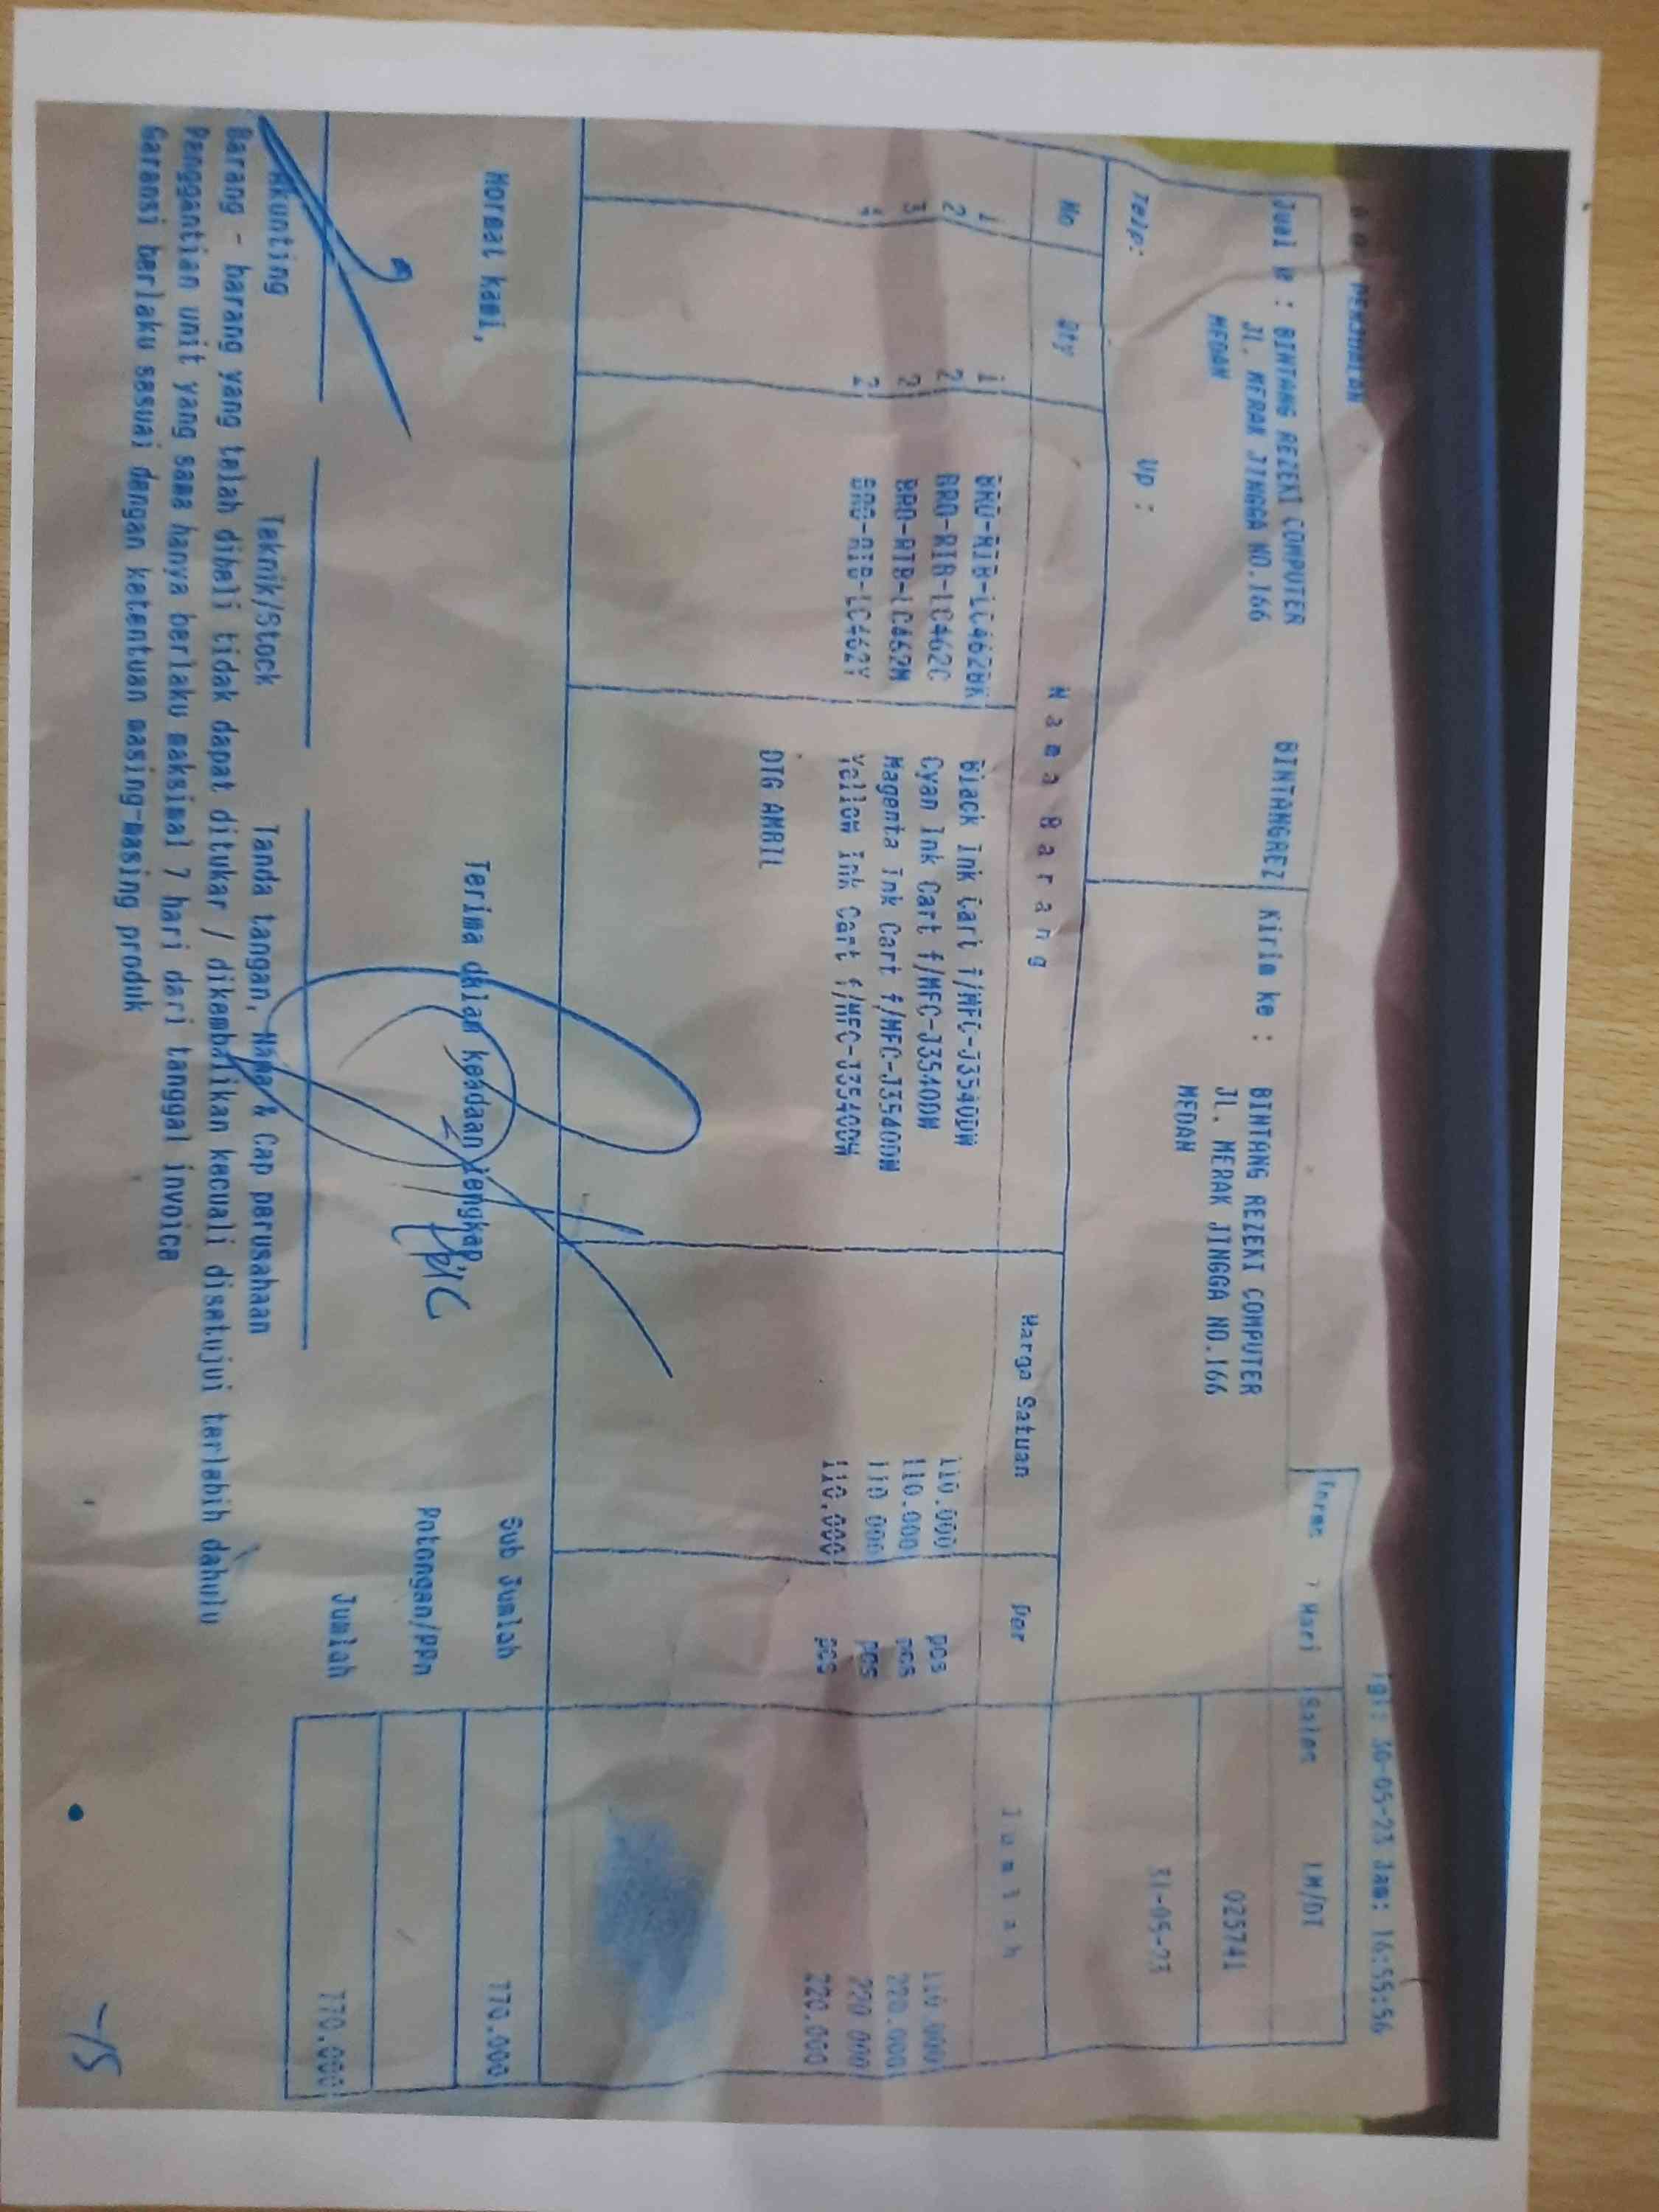 PENJUALAN
Tgl: 30-05-23 Jam: 16:55:56
BINTANGREZ
Kirim ke : BINTANG REZEKI COMPUTER
JL. MERAK JINGGA NO.166
MEDAN
: BINTANG REZEKI COMPUTER
Jl. MERAK JINGGA NO.166
MEDAN
Hari Sales LM/DT
025741
31-05-23
Telp: Up :
No Qty Nama Barang Harga Satuan Per Jumlah
1 1 BRO-RIB-LC462BK Black Ink Cart f/MFC-J3540DW 110.000 pcs 110.000
2 2 BRO-RIB-LC462C Cyan Ink Cart f/MFC-J3540DW 110.000 pcs 220.000
3 2 BRO-RIB-LC462M Magenta Ink Cart f/MFC-J3540DW 110.000 pcs 220.000
4 2 BRO-RIB-LC462Y Yellow Ink Cart f/MFC-J3540DW 110.000 pcs 220.000
DTG AMBIL
Hormat kami, Terima dalam keadaan lengkap, Sub Jumlah 770.000
Potongan/PPn
Jumlah 770.000
Akunting Teknik/Stock Tanda tangan, Nama & Cap perusahaan
Barang - barang yang telah dibeli tidak dapat ditukar / dikembalikan kecuali disetujui terlebih dahulu
Penggantian unit yang sama hanya berlaku maksimal 7 hari dari tanggal invoice
Garansi berlaku sesuai dengan ketentuan masing-masing produk